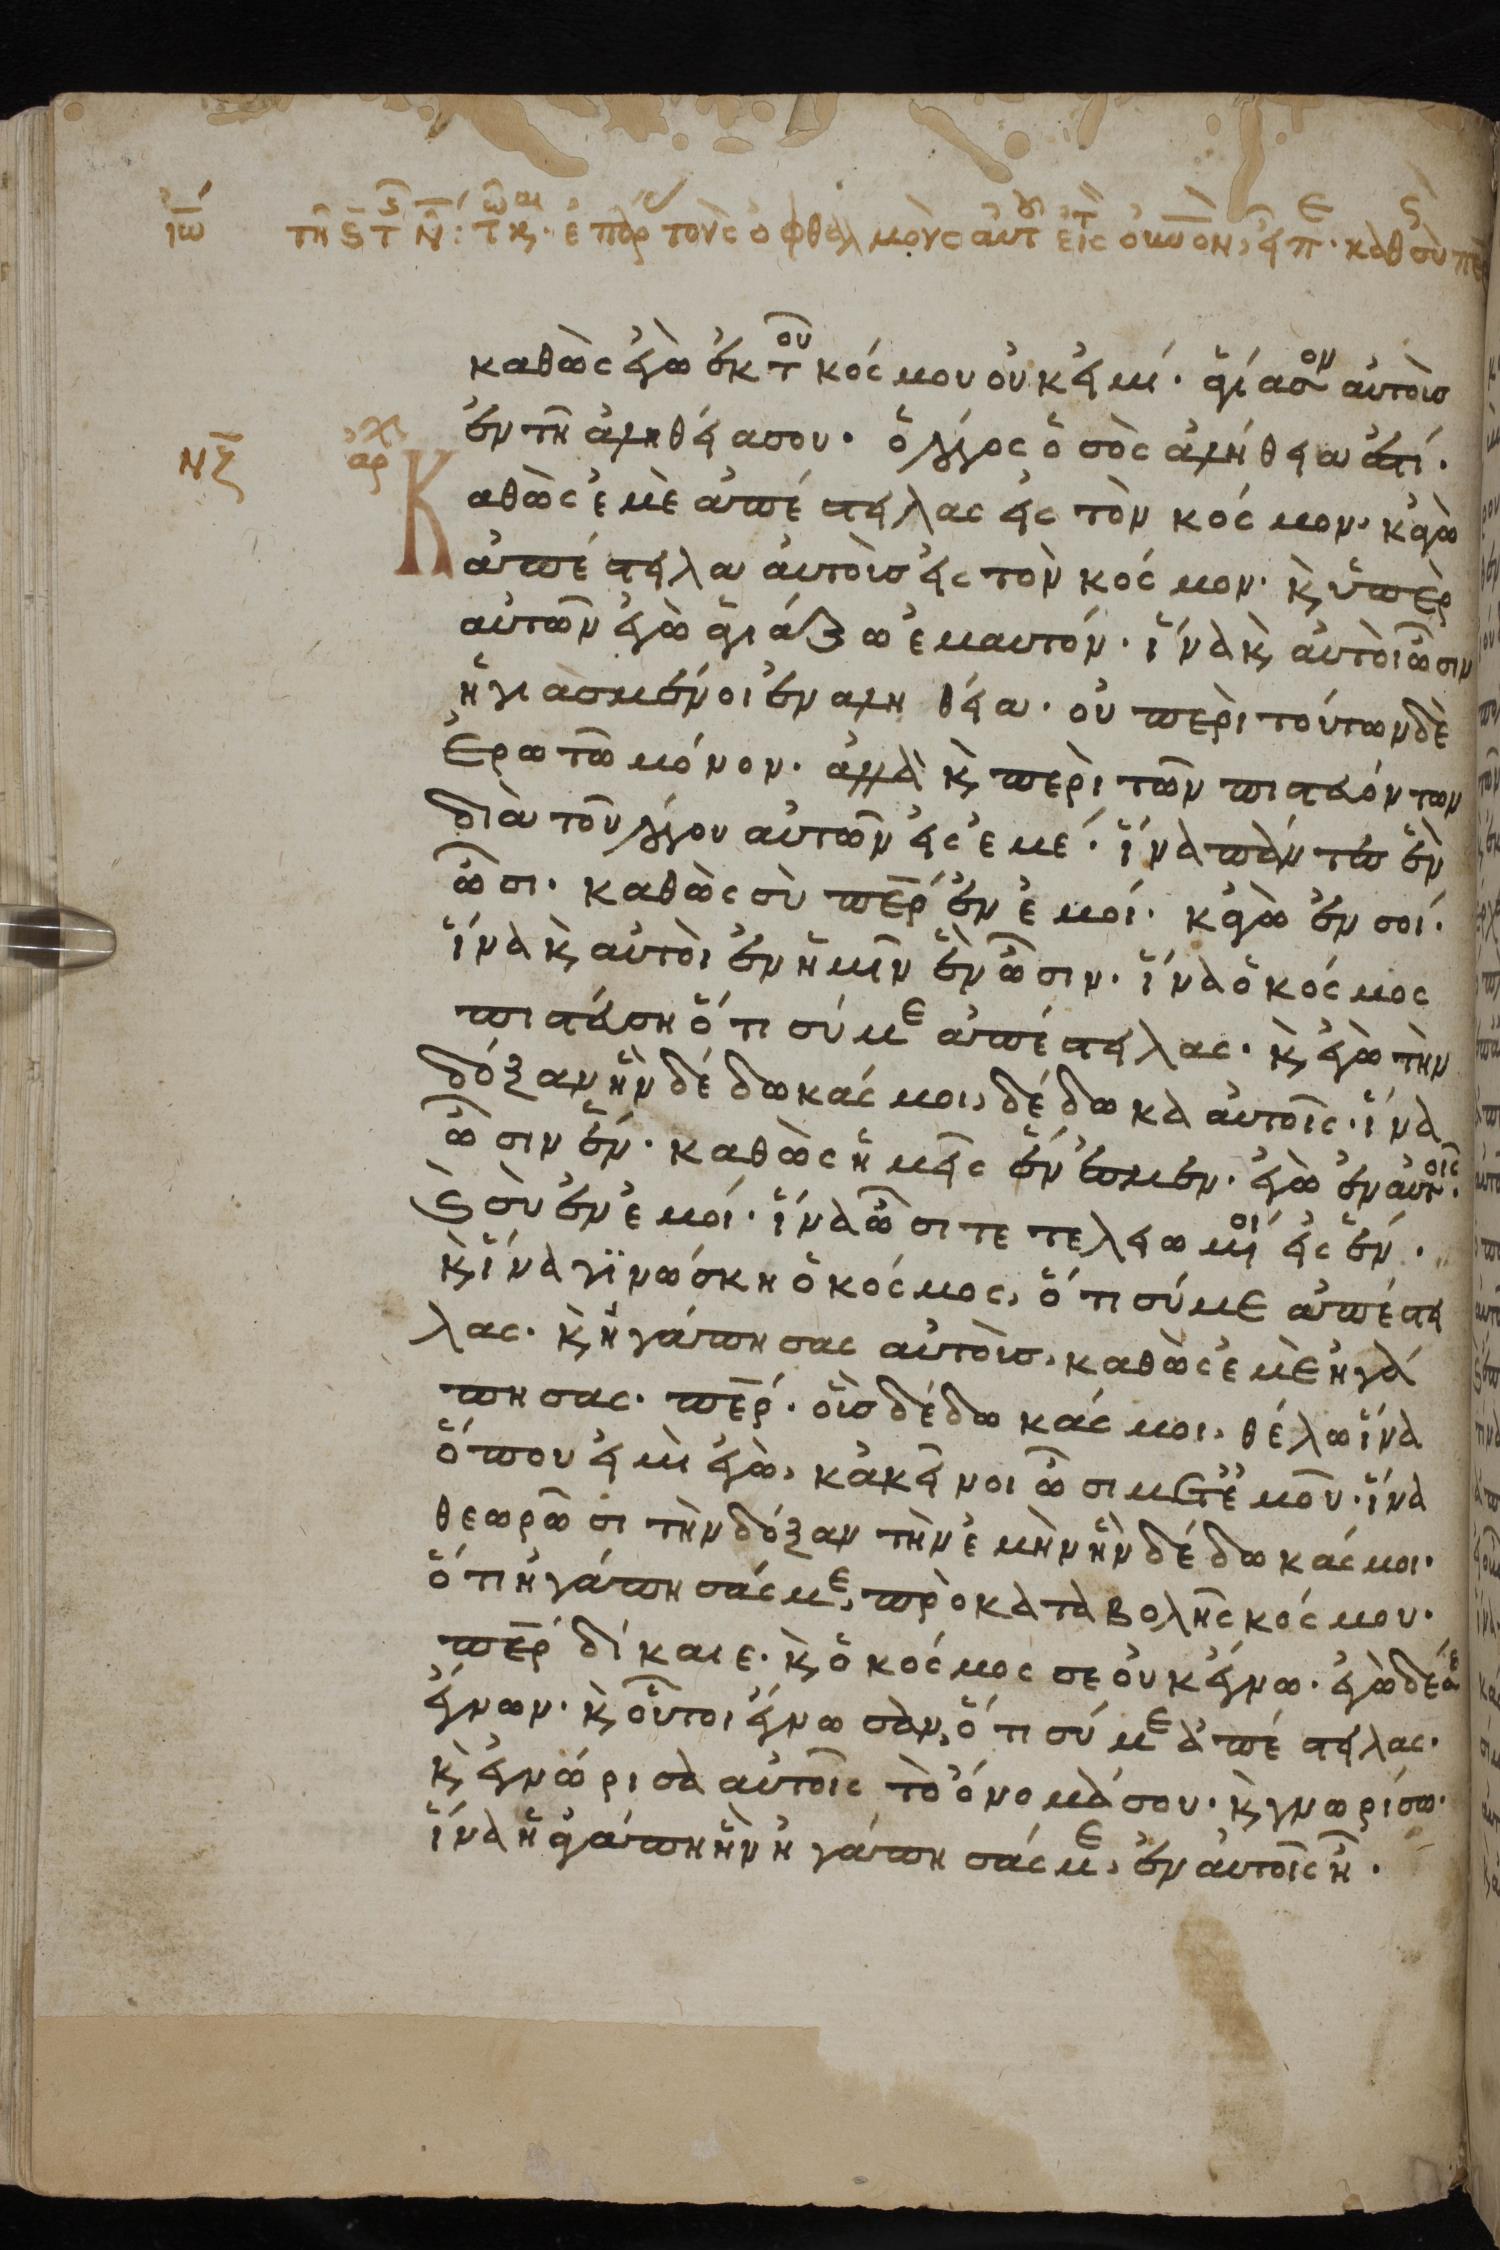 ιω τῆ ϛ τ ν: τ κ. ἐπάρ τοὺς ὀφθαλμοὺς αὐτ εἰς οὐνον, επ. καθ σὺ περ
καθὼς ἐγὼ ἐκ τοῦ κόσμου οὐκ εἰμί. ἁγίασον αὐτοὺσ
ἐν τῆ ἀληθείασου. ὁ λόγος ὁ σὸς ἀλήθεια ἐστί.
νζ αρχ Καθὼς ἐμὲ ἀπέστειλας εἰς τὸν κόσμον. κἀγὼ
ἀπέστειλα αὐτοὺσ εἰς τὸν κόσμον. κ, ὑπὲρ
αὐτῶν ἐγὼ ἁγιάζω ἐμαυτόν. ἵνα κ, αὐτοὶ ὦσιν
ἡγιασμένοι ἐν αληθεία. οὐ περὶ τούτων δὲ
ἐρωτῶ μόνον. ἀλλὰ κ, περὶ τῶν πιστευόντων
διὰ τοῦ λόγου αὐτῶν εἰς ἐμέ. ἵνα πάντες ἓν
ὦσι. καθὼς σὺ περ ἐν ἐμοί. κἀγὼ ἐν σοί.
ἵνα κ, αὐτοὶ ἐν ἡμῖν ἓν ὦσιν. ἵνα ὁ κόσμος
πιστεύση ὅτι σύ με ἀπέστειλας. κ, ἐγὼ τὴν
δόξαν ἣν δέδωκάς μοι, δέδωκα αὐτοῖς. ἵνα
ὦσιν ἕν. καθὼς ἡμεῖς ἕν ἐσμεν. ἐγὼ ἐν αὐτοῖς.
κ, σὺ ἐν ἐμοί. ἵνα ὦσι τετελειωμοι εἰς ἕν.
κ, ἵνα γϊνώσκη ὁ κόσμος, ὅτι σύ με ἀπέστει
λας. κ, ἠγάπησας αὐτοὺσ, καθὼς ἐμὲ ἠγά
πησας. περ. οὓσ δέδωκάς μοι, θέλω ἵνα
ὅπου εἰμὶ ἐγὼ, κἀκεῖνοι ὦσι μετ ἐμοῦ. ἵνα
θεωρῶσι τὴν δόξαν τὴν ἐμὴν ἣν δέδωκάς μοι.
ὅτι ἠγάπησάς με, πρὸ καταβολῆς κόσμου.
περ δίκαιε. κ, ὁ κόσμος σε οὐκ ἔγνω. ἐγὼ δέ σε
ἔγνων. κ, οὗτοι ἔγνωσαν, ὅτι σύ με ἀπέστειλας.
κ, ἐγνώρισα αὐτοῖς τὸ ὄνομά σου. κ, γνωρίσω.
ἵνα ἡ ἀγάπη ἣν ἠγάπησάς με, ἐν αὐτοῖς ἦ.